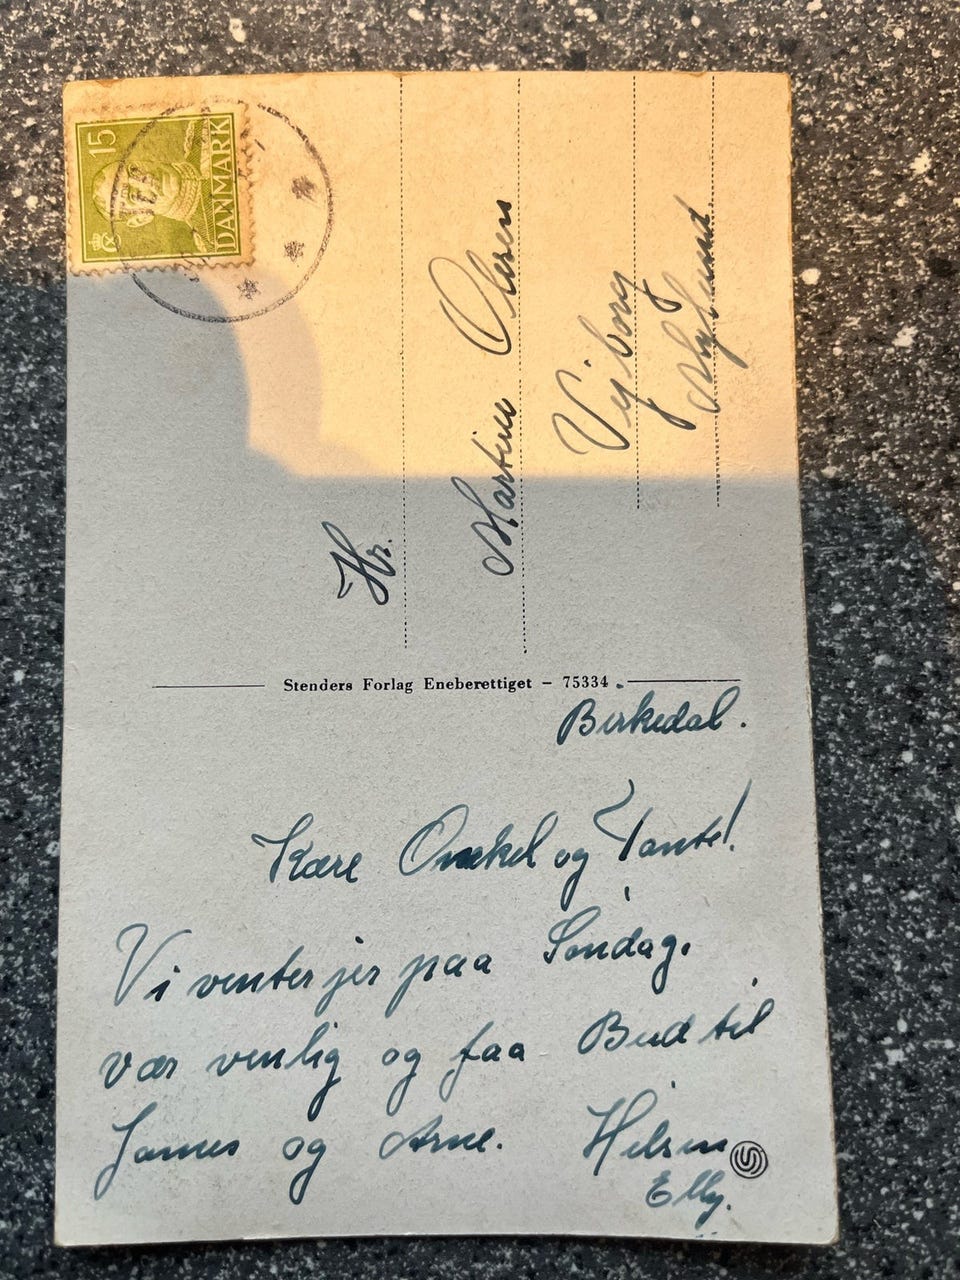 15
DANMARK
Hr.
Martin Olesen
Vejborg
Stenders Forlag Eneberettiget – 75334
Birkedal.
Kære Onkel og Tante!
Vi venter jer paa Søndag.
vær venlig og faa Bud til
James og Arne. Hilsen
Elly.